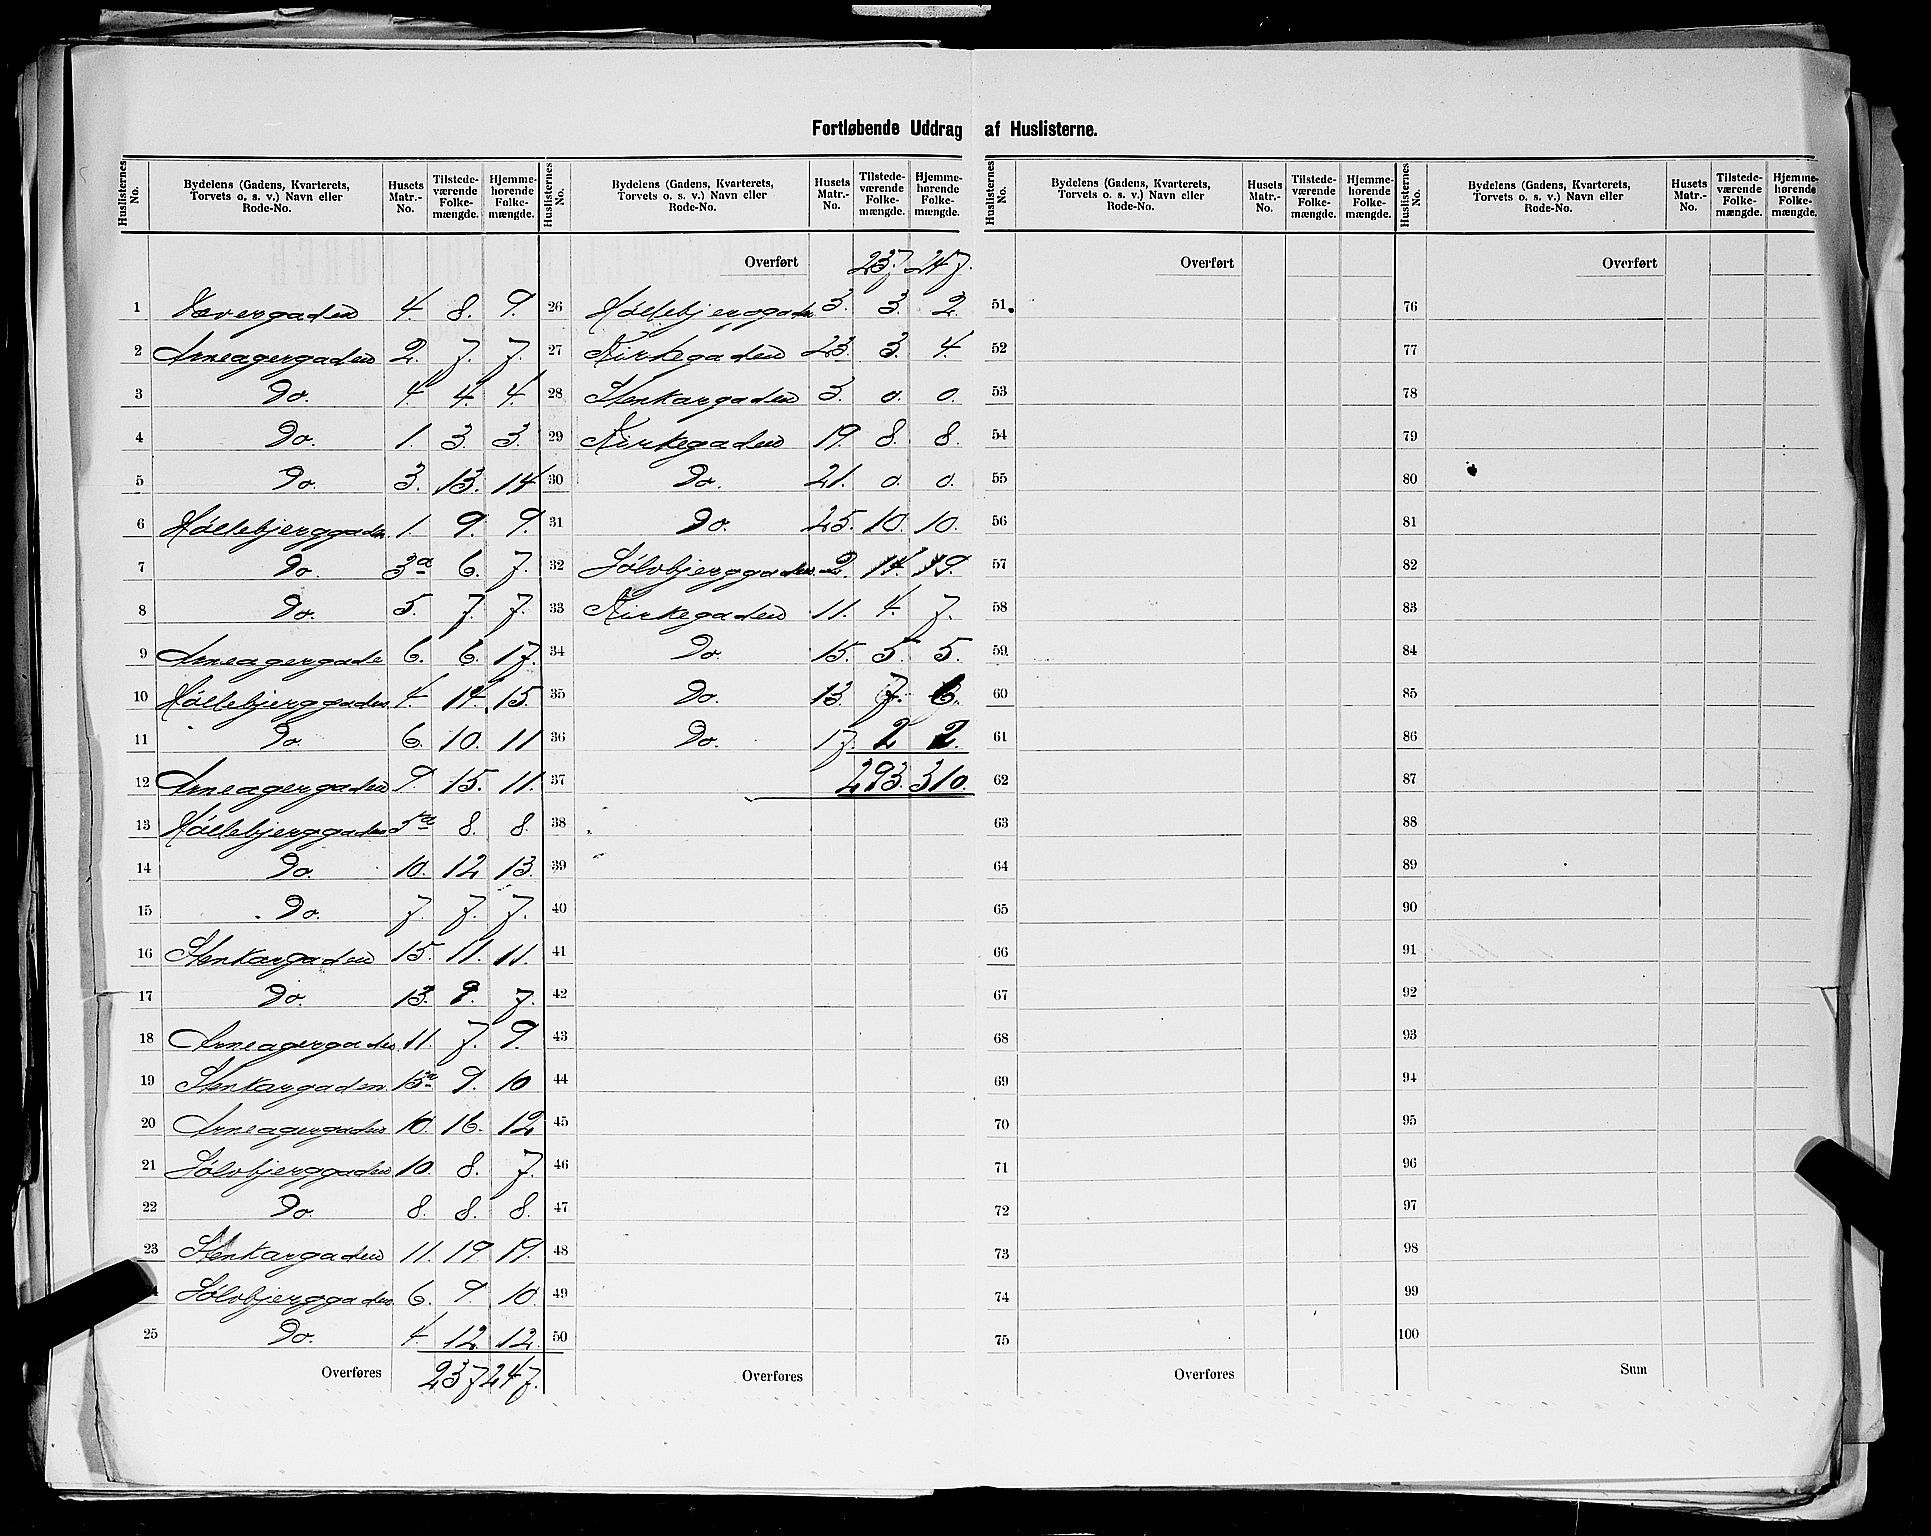 Fortløbende Uddrag af Huslisterne.
Huslisternes No. | Bydelens (Gadens, Kvarterets, Torvets o. s. v.) Navn eller Rode-No. | Husets Matr.-No. | Tilstedeværende Folkemængde. | Hjemmehørende Folkemængde.
1 Vævergaden 4. 8. 9.
2 Arneagergaden 2. 7. 7.
3 Do. 4. 4. 4.
4 Do. 1. 3. 3.
5 Do. 3. 13. 14
6 Møllebjerggaden 1. 9. 9.
7 Do. 3a 6. 7.
8 Do. 5. 7. 7.
9 Arneagergade 6. 6. 17.
10 Møllebjerggaden 4. 14. 15.
11 Do. 6. 10. 11
12 Arneagergaden 9. 15. 11.
13 Møllebjerggaden 5a 8. 8.
14 Do. 10. 12 13.
15 Do. 7. 7. 7.
16 Stenkargaden 15. 11. 11.
17 Do. 13. 9. 7.
18 Arneagergaden 11. 7. 9.
19 Stenkargaden 15a 9. 10
20 Arneagergaden 10. 16. 12
21 Sølvbjerggaden 10. 8. 7.
22 Do. 8. 8. 8.
23 Stenkargaden 11. 19 19.
Sølvbjerggaden 6. 9. 10.
25 Do. 4. 12. 12.
Overføres 237 247.
Huslisternes No. | Bydelens (Gadens, Kvarterets, Torvets o. s. v.) Navn eller Rode-No. | Husets Matr.-No. | Tilstedeværende Folkemængde. | Hjemmehørende Folkemængde.
Overført 237. 247.
26 Møllebjerggaden 3. 3. 2.
27 Kirkegaden 23. 3. 4.
28 Stenkargaden 3. 0. 0.
29 Kirkegaden 19. 8. 8.
30 Do. 21. 0. 0.
31 Do. 25. 10. 10.
32 Sølvbjerggaden 2. 14. 19.
33 Kirkegaden 11. 4. 7.
34 Do. 15. 5. 5.
35 Do. 13. 7. 6.
36 Do. 17. 2 2.
37 293. 310.
38
39
40
41
42
43
44
45
46
47
48
49
50
Overføres
Huslisternes No. | Bydelens (Gadens, Kvarterets, Torvets o. s. v.) Navn eller Rode-No. | Husets Matr.-No. | Tilstedeværende Folkemængde. | Hjemmehørende Folkemængde.
Overført
51
52
53
54
55
56
57
58
59
60
61
62
63
64
65
66
67
68
69
70
71
72
73
74
75
Overføres
Huslisternes No. | Bydelens (Gadens, Kvarterets, Torvets o. s. v.) Navn eller Rode-No. | Husets Matr.-No. | Tilstedeværende Folkemængde. | Hjemmehørende Folkemængde.
Overført
76
77
78
79
80
81
82
83
84
85
86
87
88
89
90
91
92
93
94
95
96
97
98
99
100
Sum